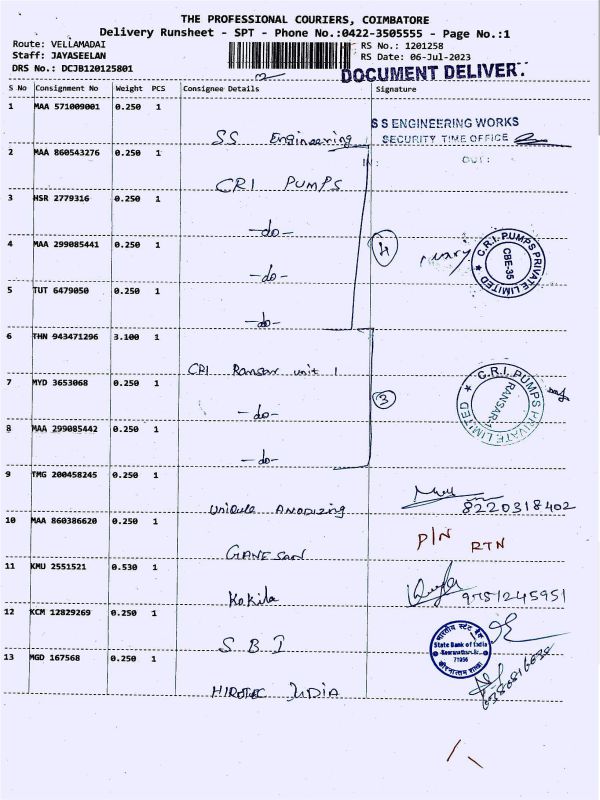 THE PROFESSIONAL COURIERS, COIMBATORE
Delivery Runsheet - SPT - Phone No.:0422-3505555 - Page No.:1
Route: VELLAMADAI
Staff: JAYASEELAN
DRS No.: DCJB120125801
RS No.: 1201258
RS Date: 06-Jul-2023
DOCUMENT DELIVER
S No Consignment No Weight PCS Consignee Details Signature
1 MAA 571009001 0.250 1
SS Engineering
S S ENGINEERING WORKS
SECURITY TIME OFFICE
IN: OUT:
2 MAA 860543276 0.250 1
CRI PUMPS
3 HSR 2779316 0.250 1
-do-
4 MAA 299085441 0.250 1
-do-
4
C.R.I. PUMPS PRIVATE LIMITED
CBE-35
5 TUT 6479050 0.250 1
-do-
6 THN 943471296 3.100 1
CRI Ransar unit 1
7 MYD 3653068 0.250 1
-do-
3
C.R.I. PUMPS PRIVATE LIMITED
RANSAR-1
8 MAA 299085442 0.250 1
-do-
9 TMG 200458245 0.250 1
UNIQUE ANODIZING
8220318402
10 MAA 860386620 0.250 1
GANESAN
P/N RTN
11 KMU 2551521 0.530 1
Kokila
9751245951
12 KCM 12829269 0.250 1
S B I
भारतीय स्टेट बैंक
State Bank of India
71956
13 MGD 167568 0.250 1
HIROTEC INDIA